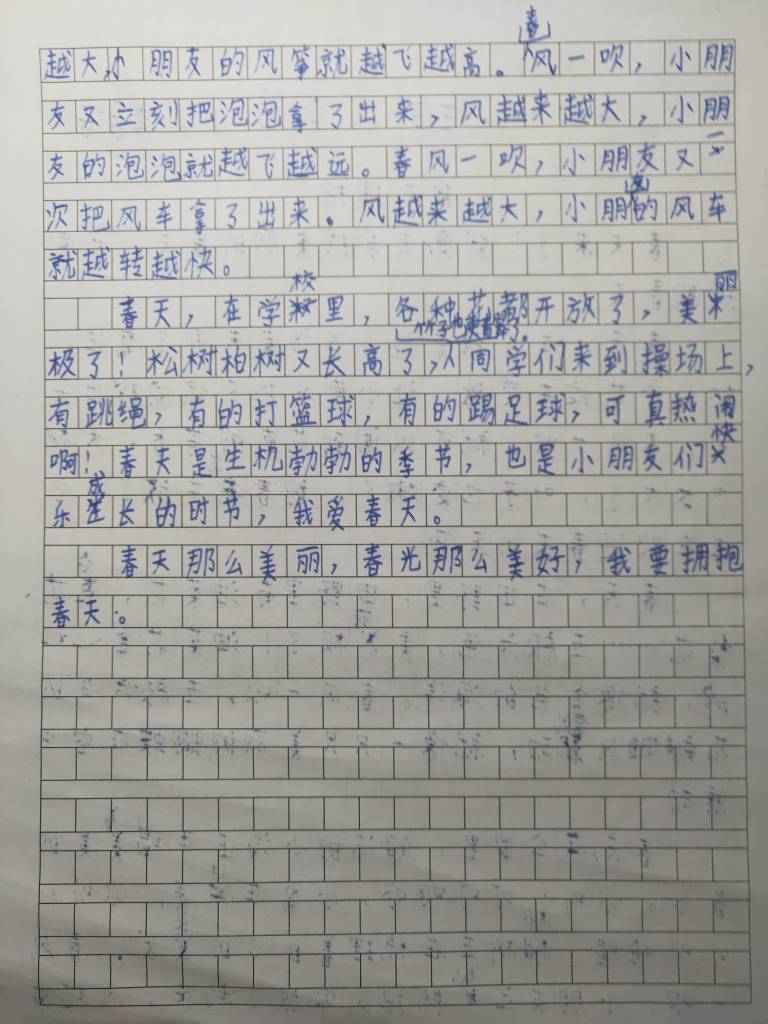 越大,小朋友的风筝就越飞越高。春风一吹，小朋
友又立刻把泡泡拿了出来，风越来越大，小朋
友的泡泡就越飞越远。春风一吹，小朋友又一
次把风车拿了出来。风越来越大，小朋友的风车
就越转越快。
春天，在学校里，各种花都开放了，美丽
极了！松树柏树又长高了，同学们来到操场上，
有跳绳，有的打篮球，有的踢足球，可真热闹
啊！春天是生机勃勃的季节，也是小朋友们快
乐成长的时节，我爱春天。
春天那么美丽，春光那么美好，我要拥抱
春天。